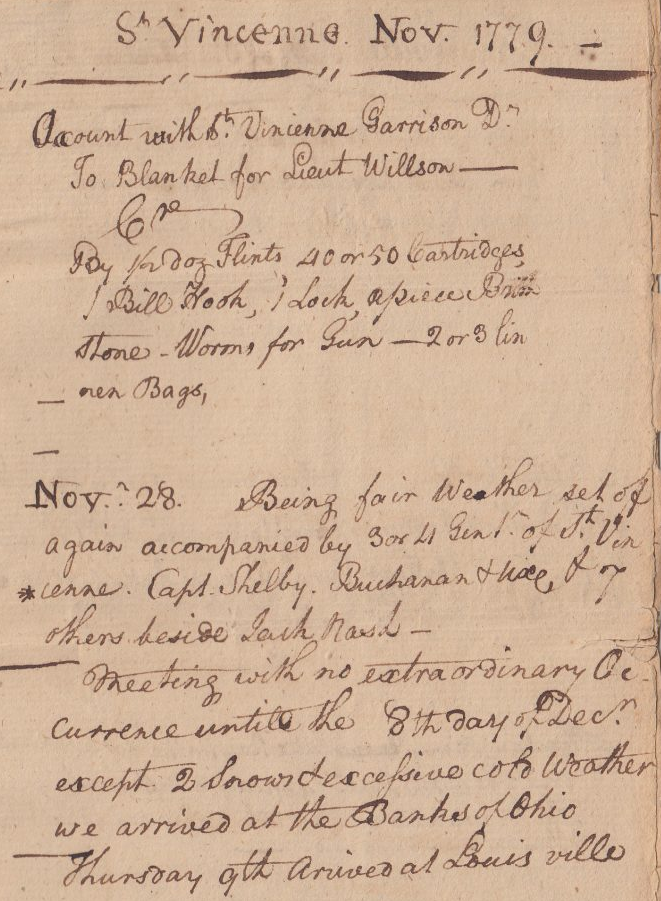 St Vincenne. Nov. 1779. —
Account with St. Vincenne Garrison Dr
To Blanket for Lieut Willson —
Cre
By 1/2 doz Flints 40 or 50 Cartridges,
1 Bill Hook, 1 Lock, a piece Brim
stone - Worms for Gun — 2 or 3 lin
— nen Bags,
—
Novr. 28. Being fair Weather set of
again accompanied by 3 or 4 Genln. of St. Vin
*cenne. Capt. Shelby. Buchanan & & 7
others beside Jack Nash —
Meeting with no extraordinary Oc-
currence untill the 8th day of Decr.
except 2 Snows & excessive cold Weather
we arrived at the Banks of Ohio
Thursday 9th Arived at Louis ville